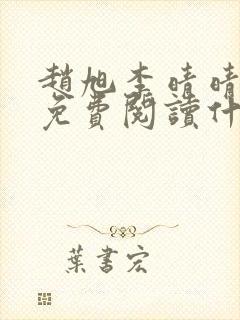 趙旭李晴晴
免費閱讀什
葉書宏